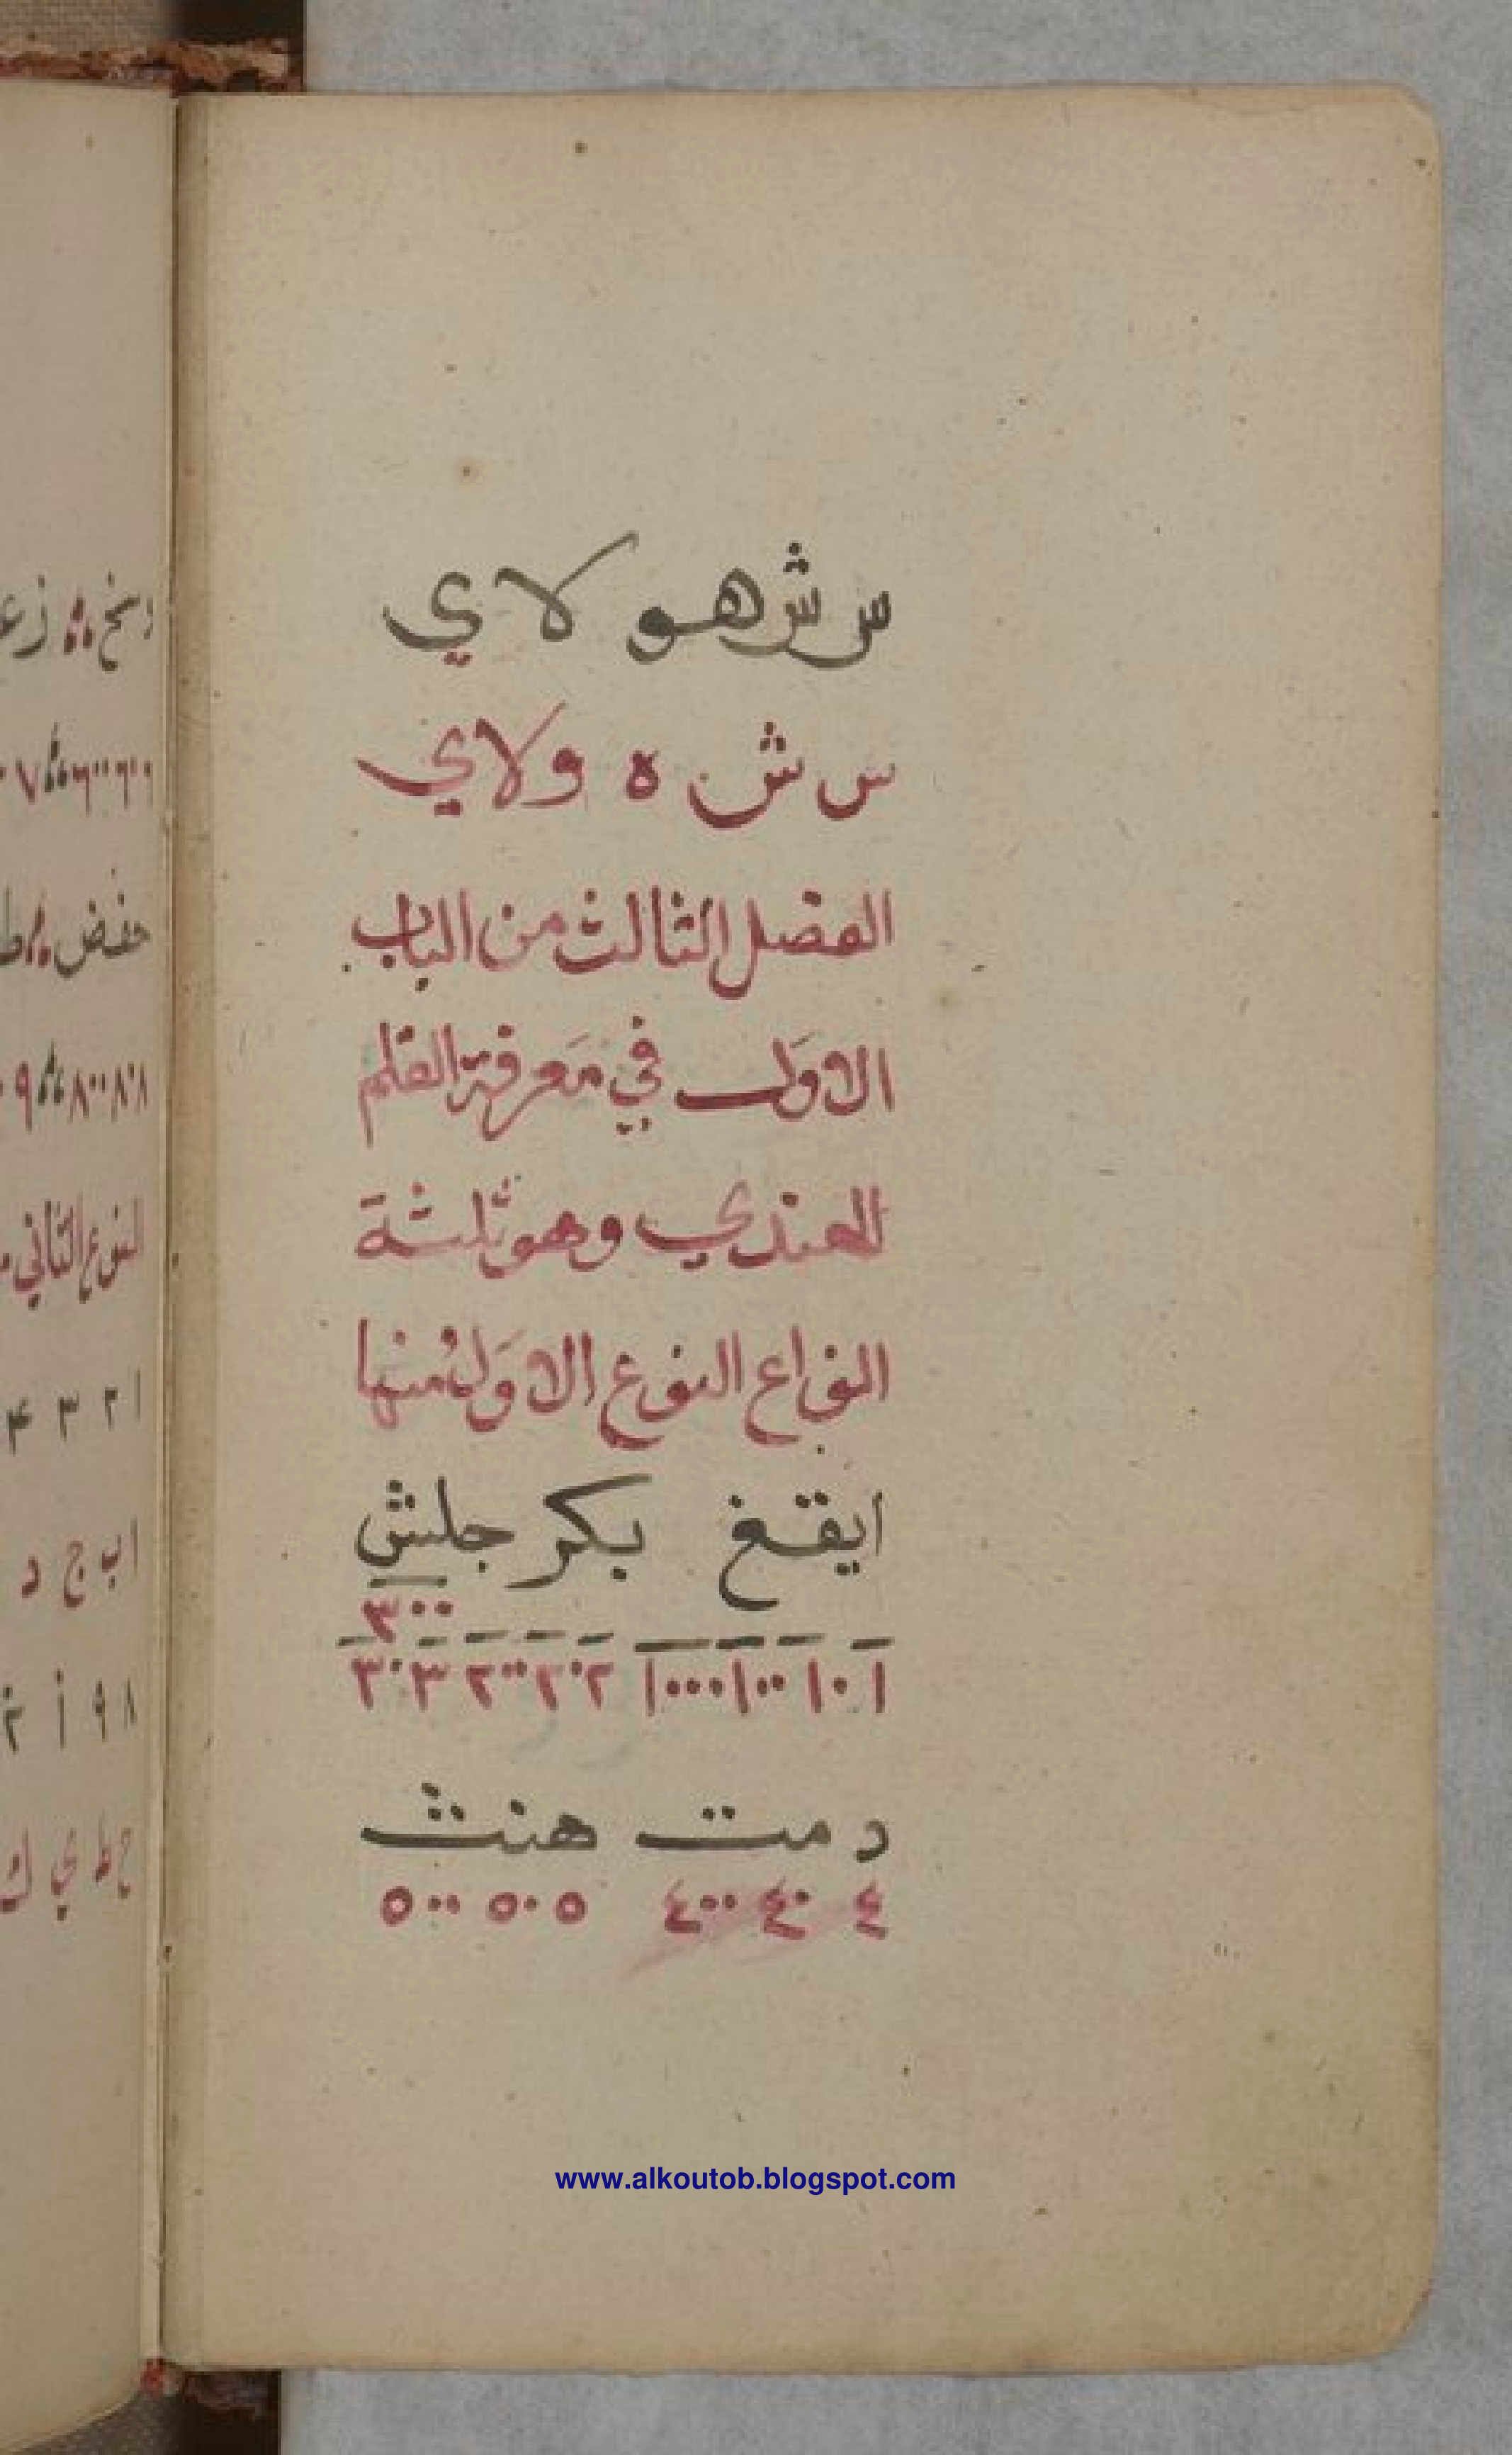 س ش هو لا ي
س ش ه و لا ي
الفصل الثالث من الباب
الاوَل في مَعرفة القلم
الهندي وهو ثلثة
انواع النوع الاوَل منها
ايقغ بكر جلش
٣٠٠
١ ١٠ ١٠٠ ١٠٠٠ ٢ ٢٠ ٢٠٠ ٣ ٣٠
دمت هنث
٤ ٤٠ ٤٠٠ ٥ ٥٠ ٥٠٠
زع
حفض
النوع الثاني
ا ٢ ٣ ۴
ا ب ج د
٨ ٩ أ
ح ط ي ك
www.alkoutob.blogspot.com